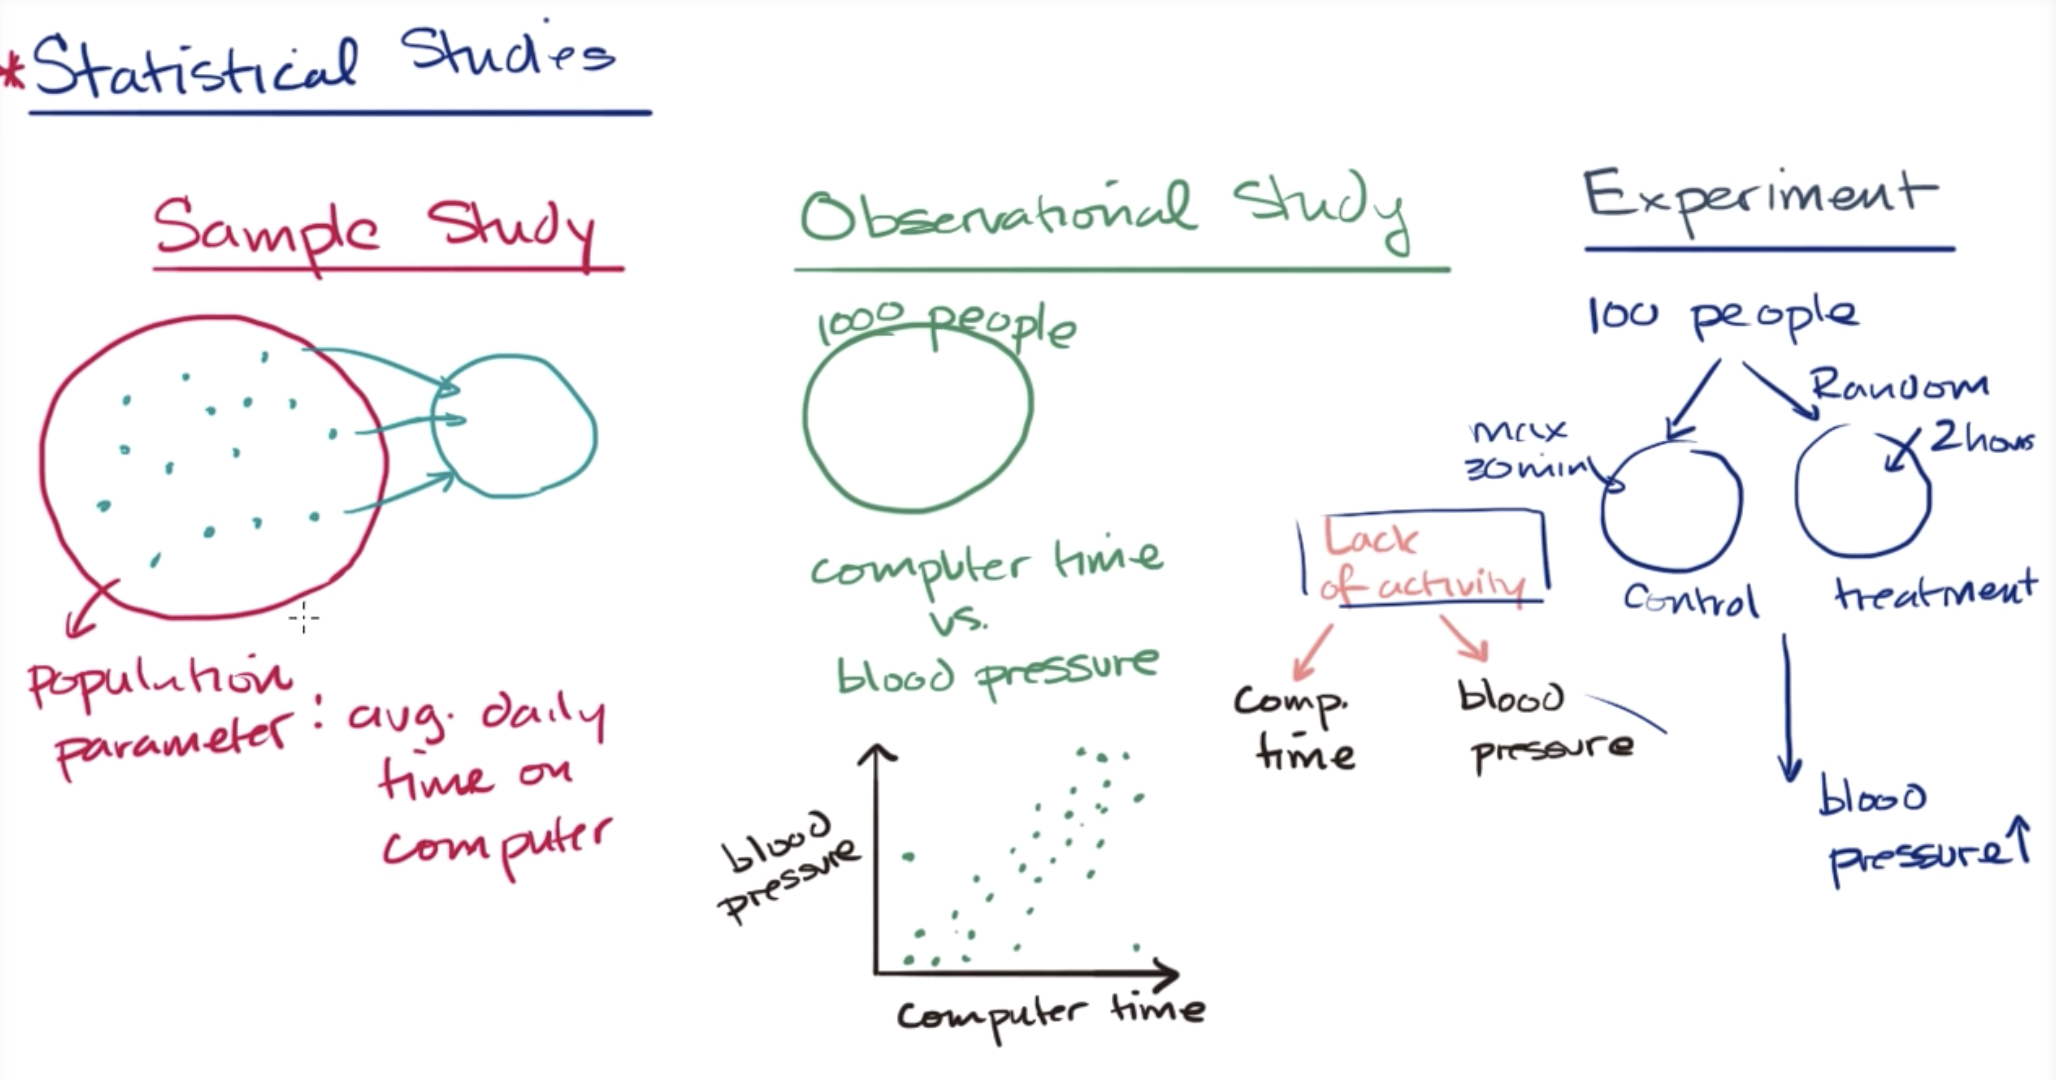 *Statistical Studies
Sample Study
Population
parameter: avg. daily
time on
computer
Observational Study
1000 people
computer time
vs.
blood pressure
blood
pressure
computer time
Lack
of activity
Comp.
time
blood
pressure
Experiment
100 people
Random
max
30min
2 hours
Control
treatment
blood
pressure↑